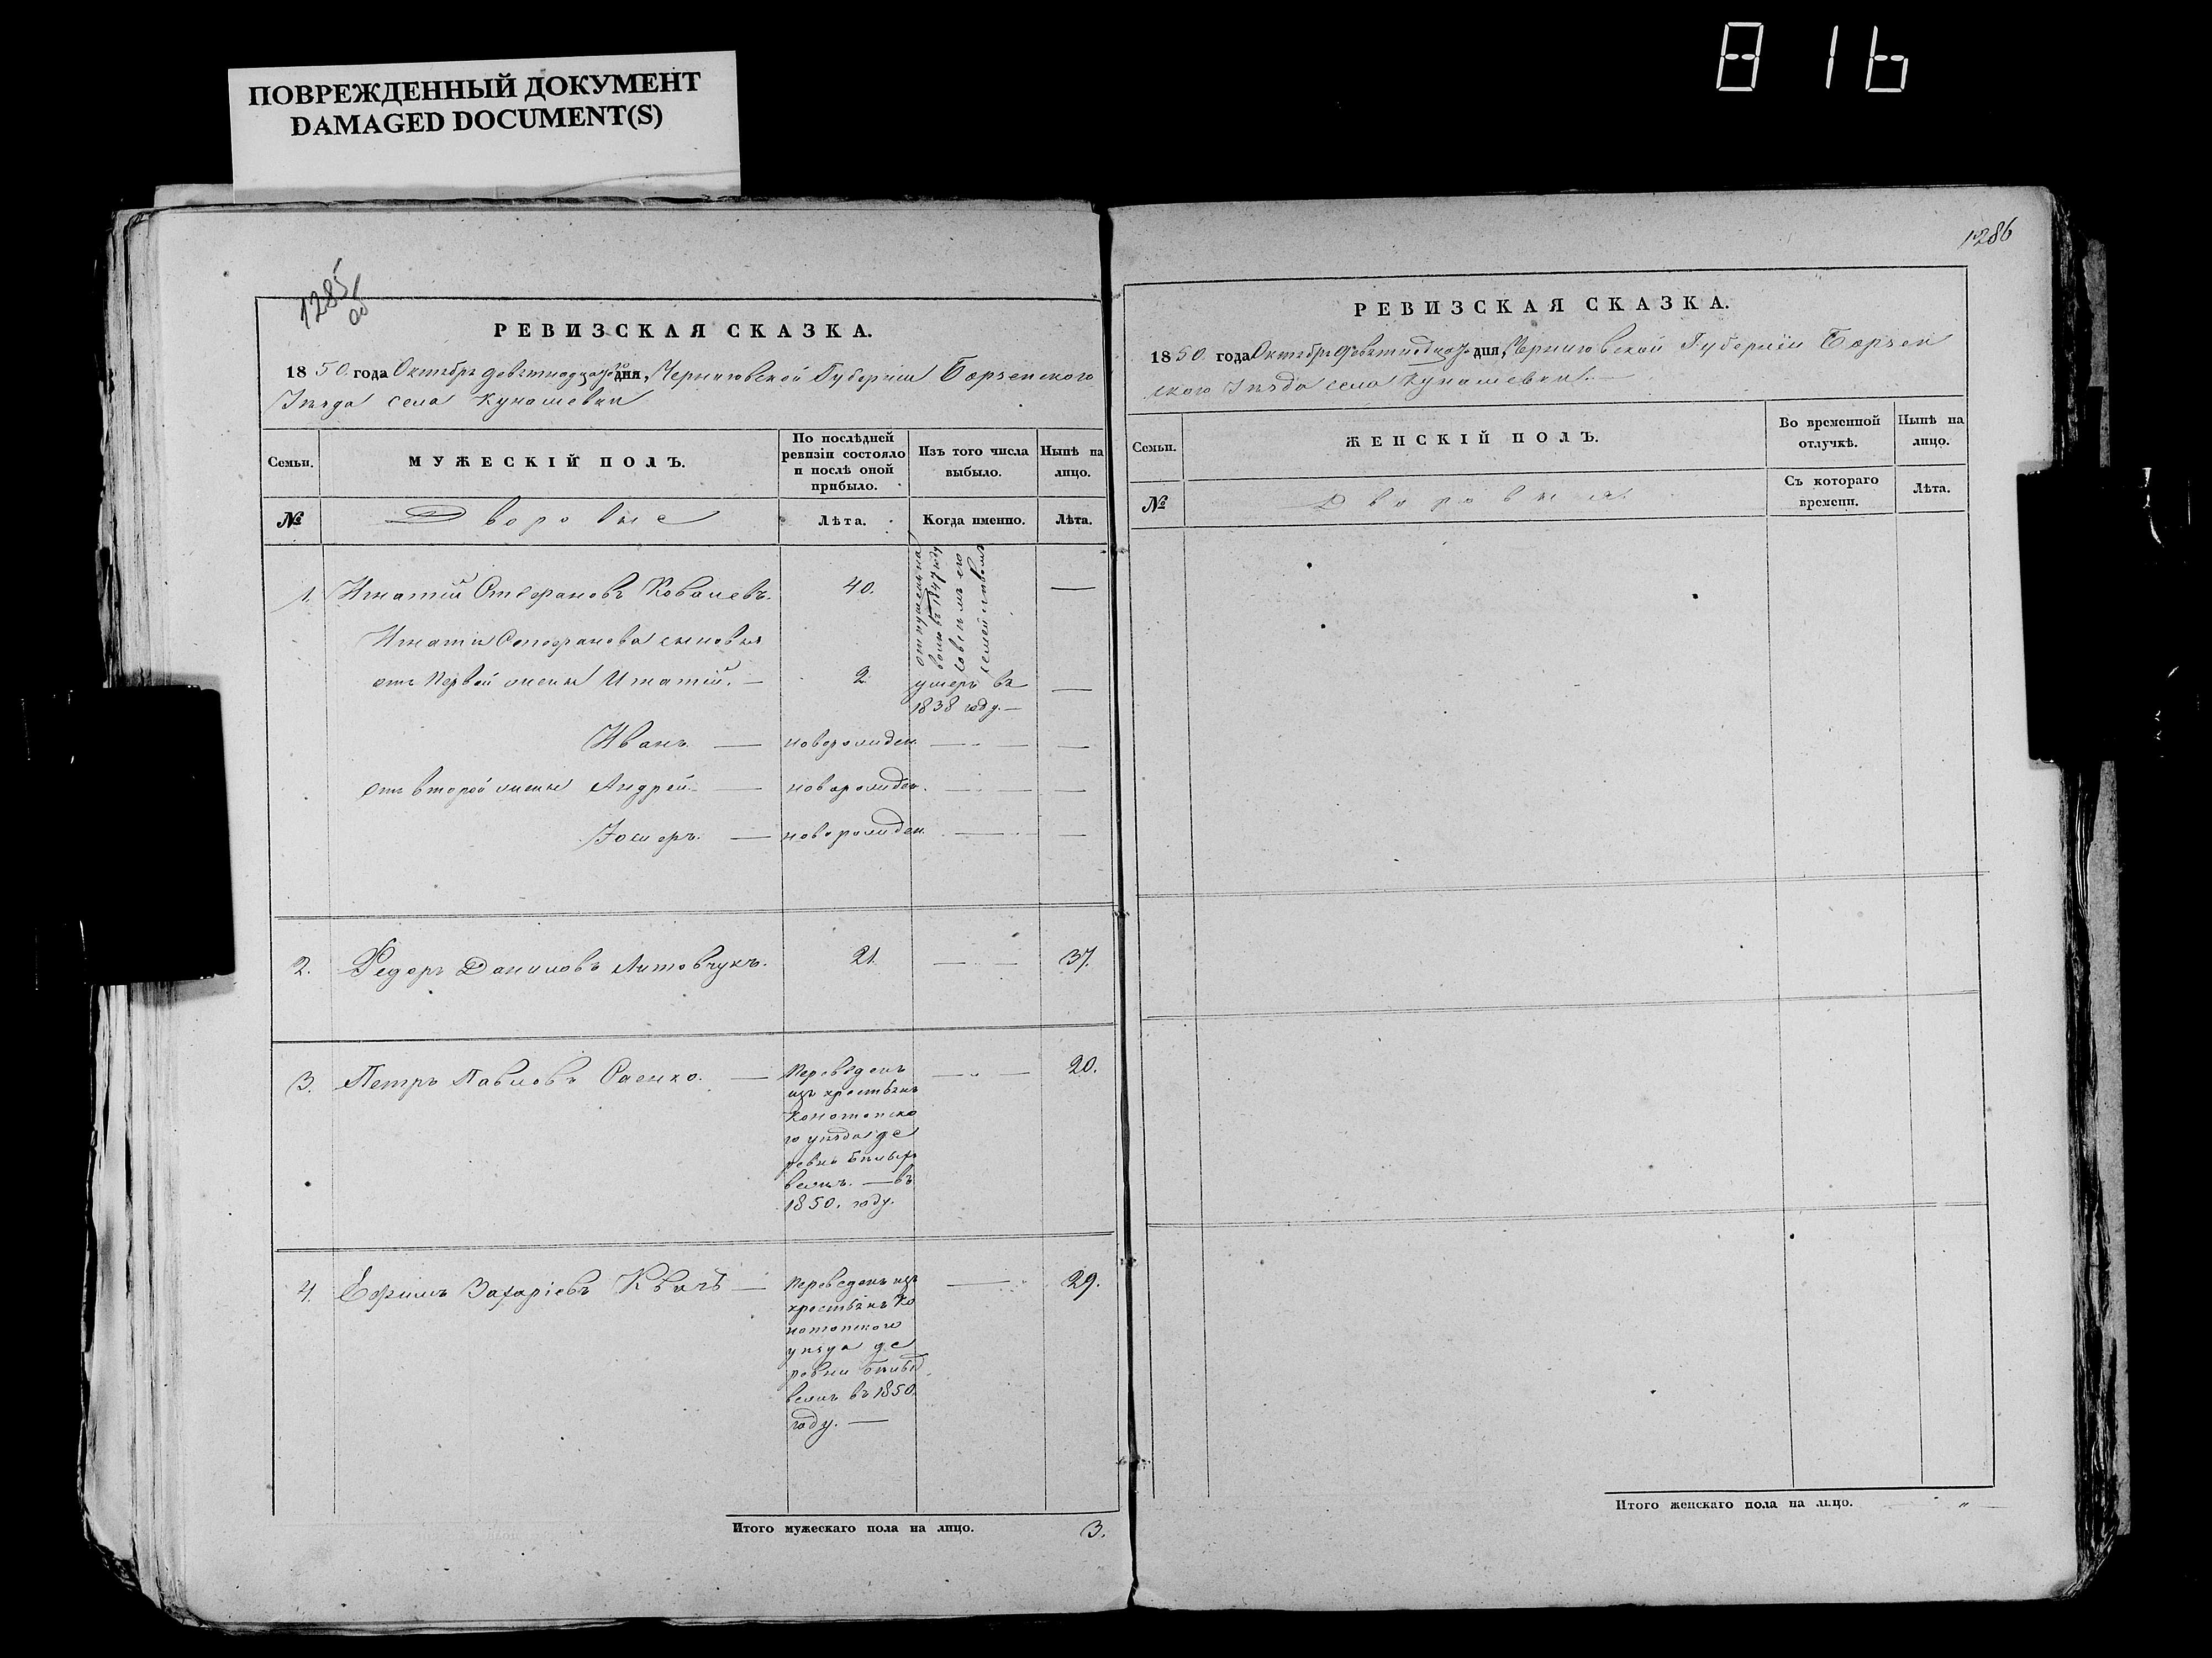 ПОВРЕЖДЕННЫЙ ДОКУМЕНТ
DAMAGED DOCUMENT(S)
816
1285
об
РЕВИЗСКАЯ СКАЗКА.
1850. года Октября девятнадцаго дня, Черниговской Губерніи Борзенского
Уѣзда села Кунашевки
Семьи.
МУЖЕСКІЙ ПОЛЪ.
По послѣдней
ревизіи состояло
и послѣ оной
прибыло.
Изъ того числа
выбыло.
Нынѣ на
лицо.
№
Дворовые
Лѣта.
Когда именно.
Лѣта.
1. Игнатій Стефановъ Ковалевъ. 40. —
отпущенъ на
волю въ 1847 году
совсѣмъ его
семействомъ
Игнатія Стефанова сыновья
отъ первой жены Игнатій. — 2. умеръ въ —
1838 году. —
Иванъ. — новорожден. — —
отъ второй жены Андрей. — новорожден. — —
Іосифъ. — новорожден. — —
2. Федоръ Даниловъ Литовчукъ. 21. — 37.
3. Петръ Павловъ Саенко. — переведенъ — 20.
изъ крестьянъ
Конотопско
го уѣзда де
ревнѣ
— въ
1850. году.
4. Ефимъ Захаріевъ Квачъ — переведенъ изъ — 29.
крестьянъ Ко
нотопского
уѣзда де
ревни
въ 1850.
году. —
Итого мужескаго пола на лицо. 3.
1286
РЕВИЗСКАЯ СКАЗКА.
1850 года Октября девятнадцаго дня, Черниговской Губерніи Борзен
ского Уѣзда села Кунашевки. —
Семьи.
ЖЕНСКІЙ ПОЛЪ.
Во временной
отлучкѣ.
Нынѣ на
лицо.
№
Дворовыя
Съ котораго
времени.
Лѣта.
Итого женскаго пола на лицо. — „ —